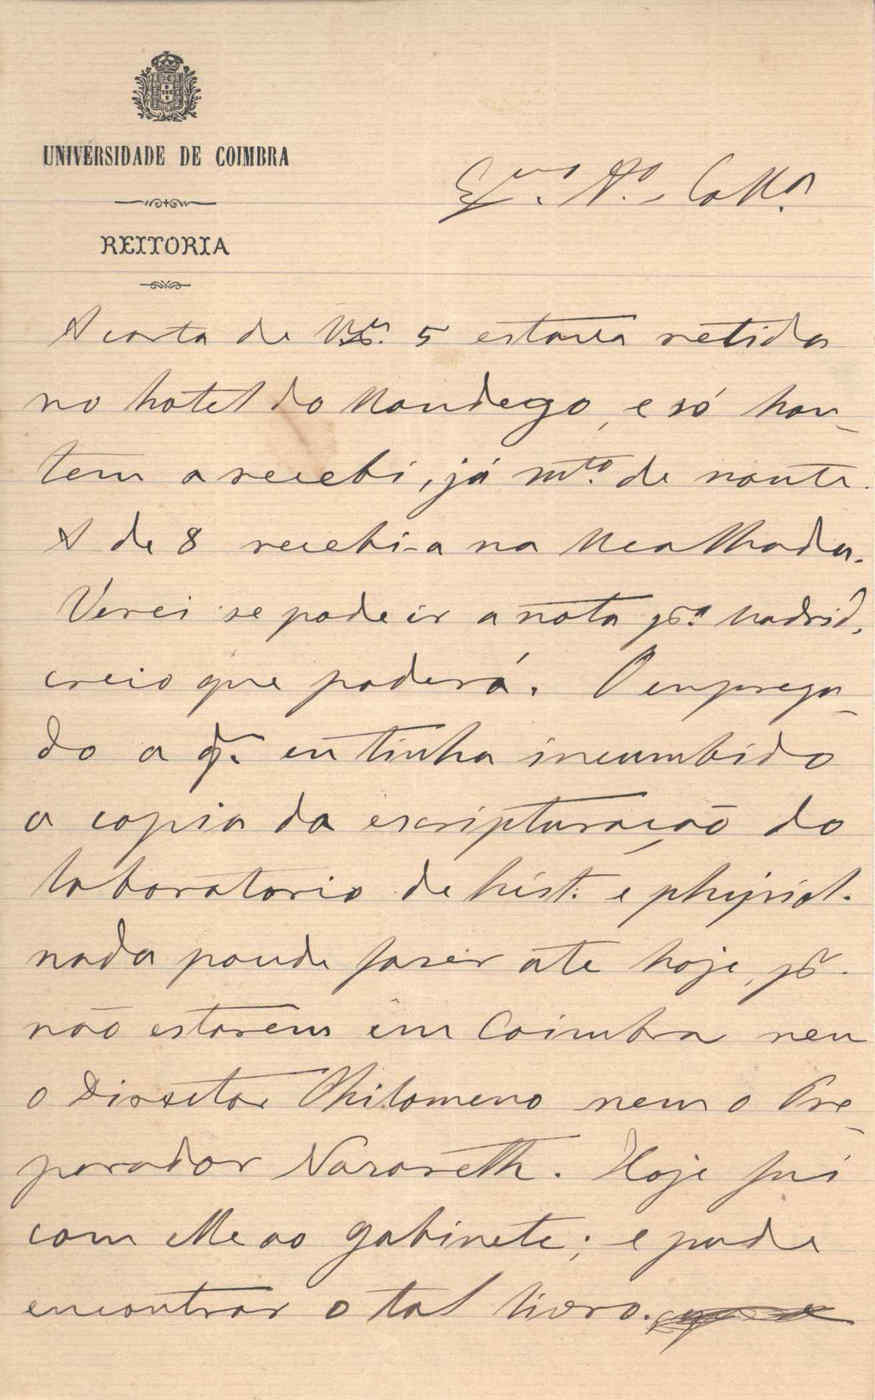 UNIVERSIDADE DE COIMBRA
REITORIA
Exmo. Ao. Colla.
A carta de 5 estava retida
no hotel do Mondego, e só hon-
tem a recebi, já mto. de noute.
A de 8 recebi-a na Mealhada.
Verei se pode ir a nota pa. Madrid,
creio que poderá. O emprega-
do a q. eu tinha incumbido
a copia da escripturação do
laboratorio de hist. e physiol.
nada poude faser ate hoje, pr.
não estarem em Coimbra nem
o Director Philomeno nem o Pre-
parador Nazareth. Hoje fui
com elle ao gabinete; e pude
encontrar o tal livro.